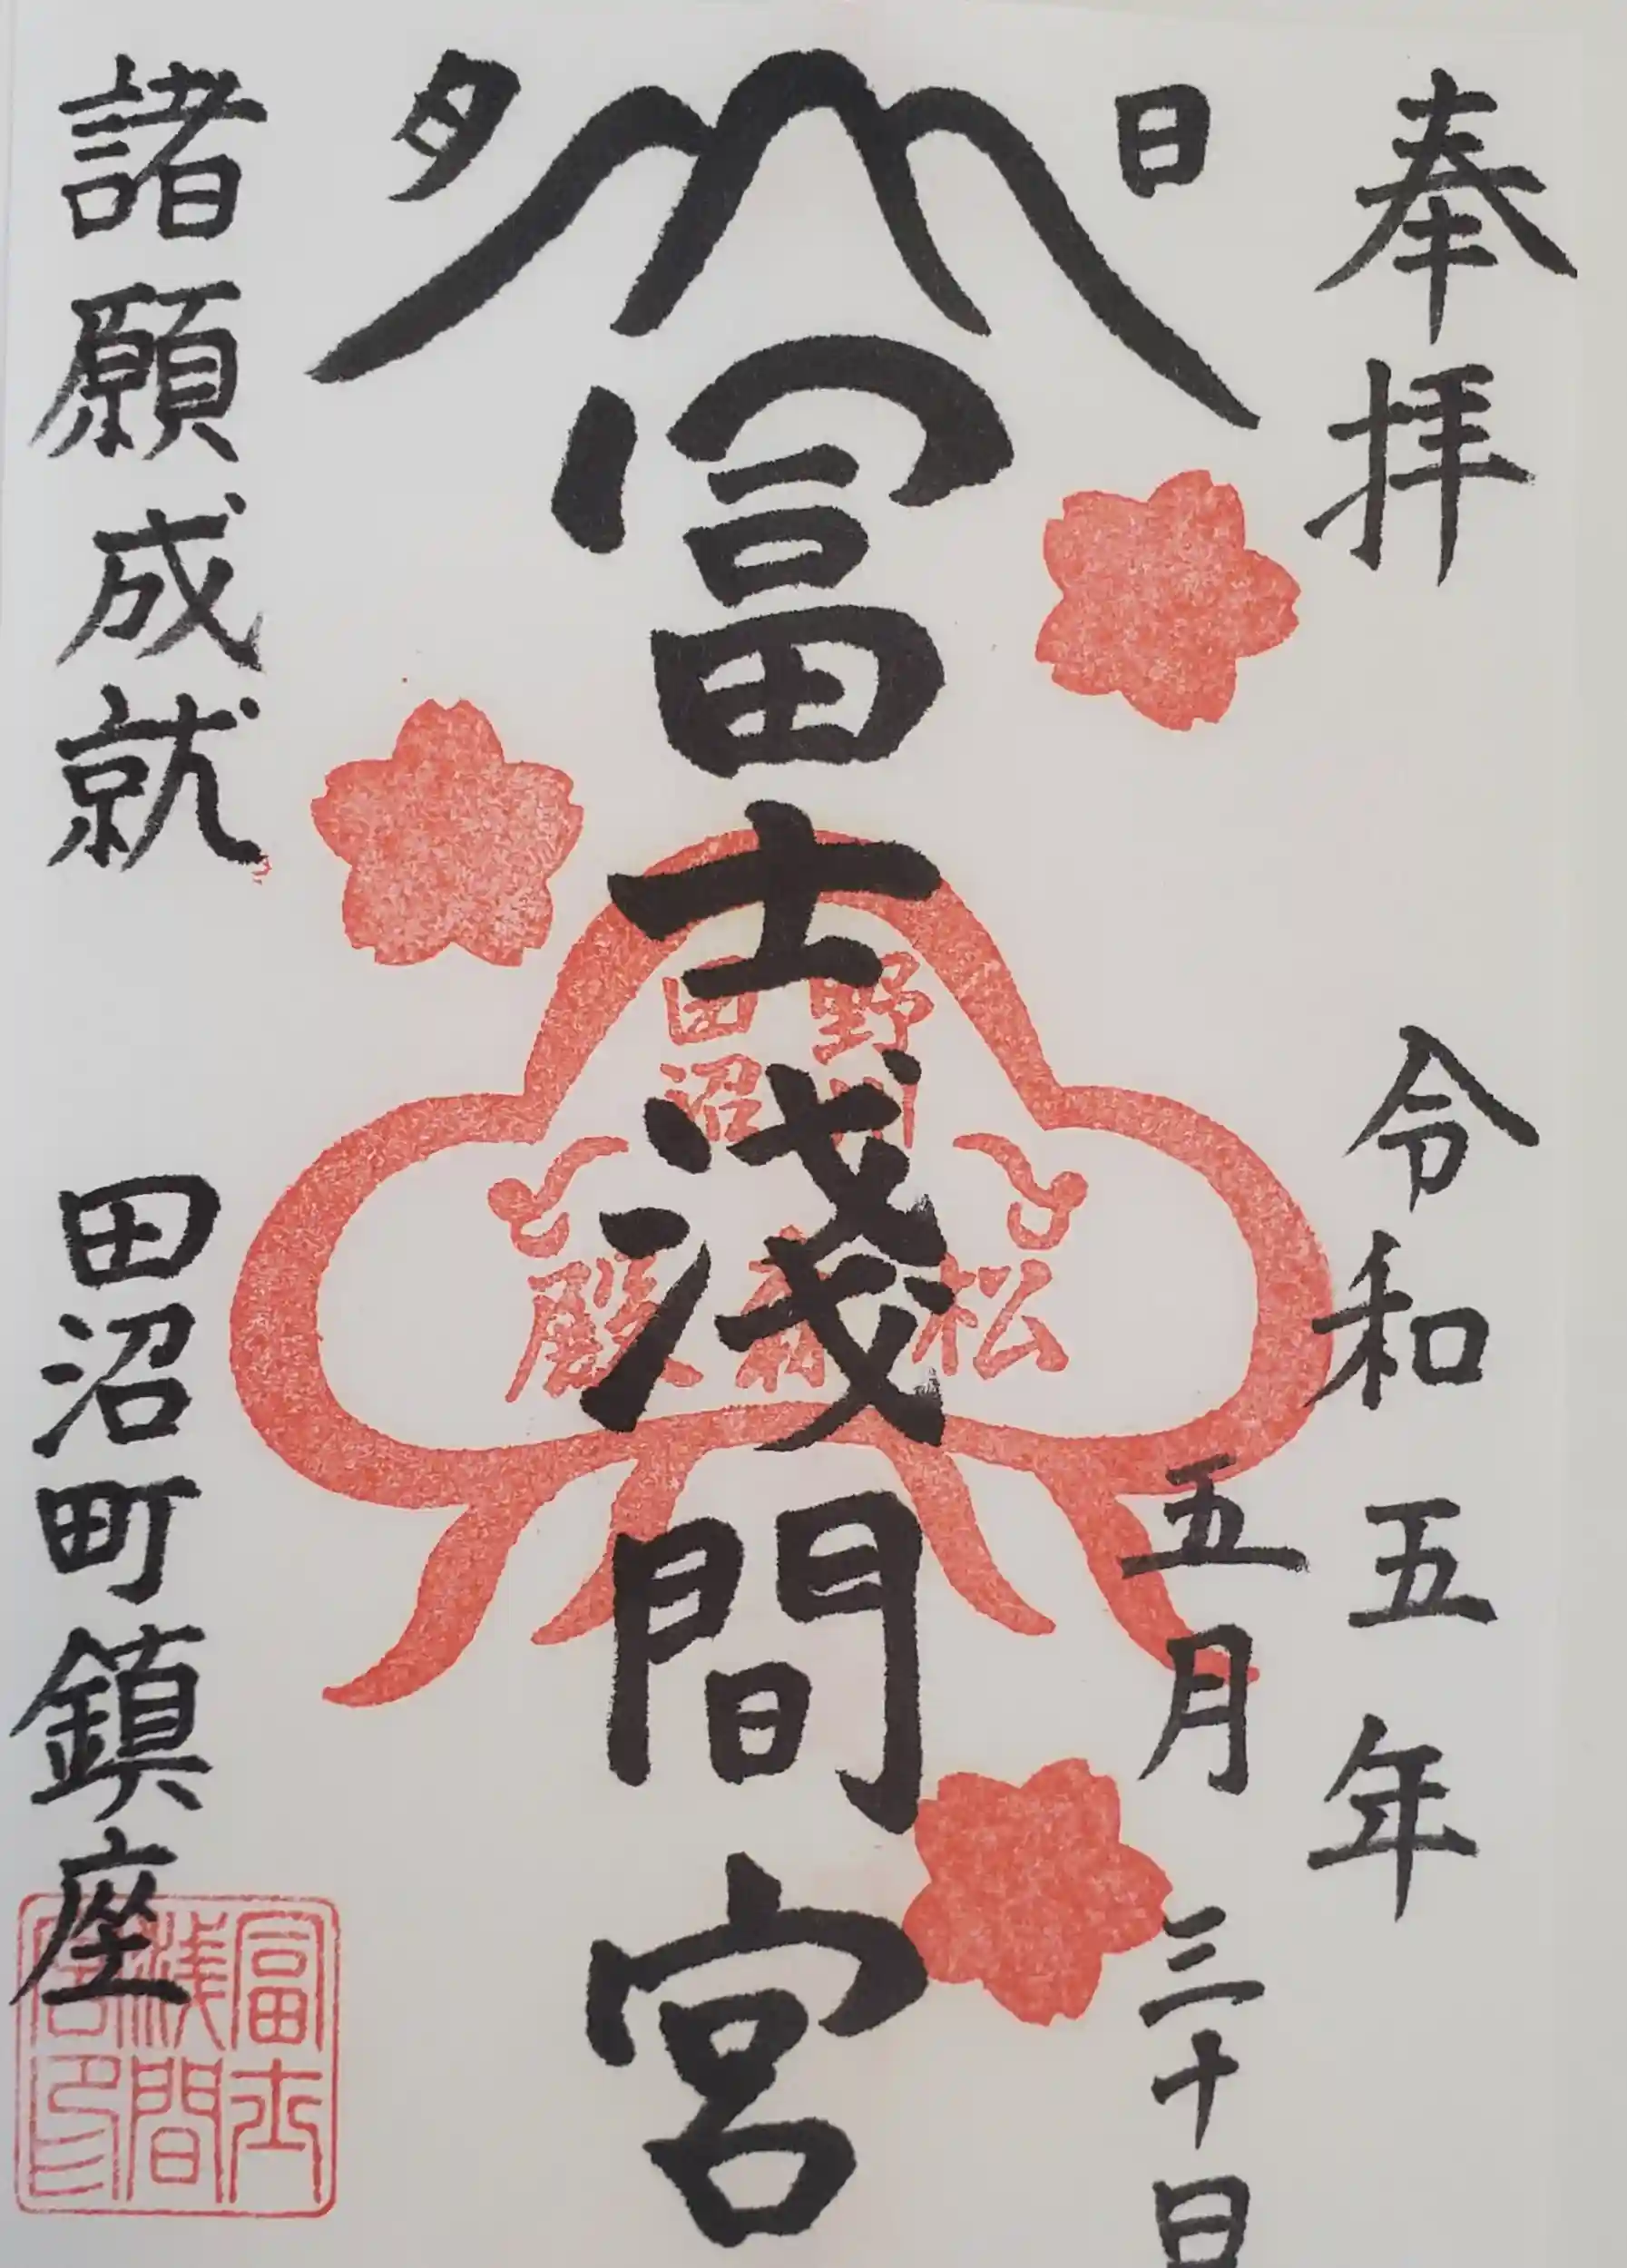 奉拝
令和五年
五月三十日
日
月
冨士浅間宮
諸願成就
田沼町鎮座
野州
田沼
松森殿
冨士
浅間
宮印